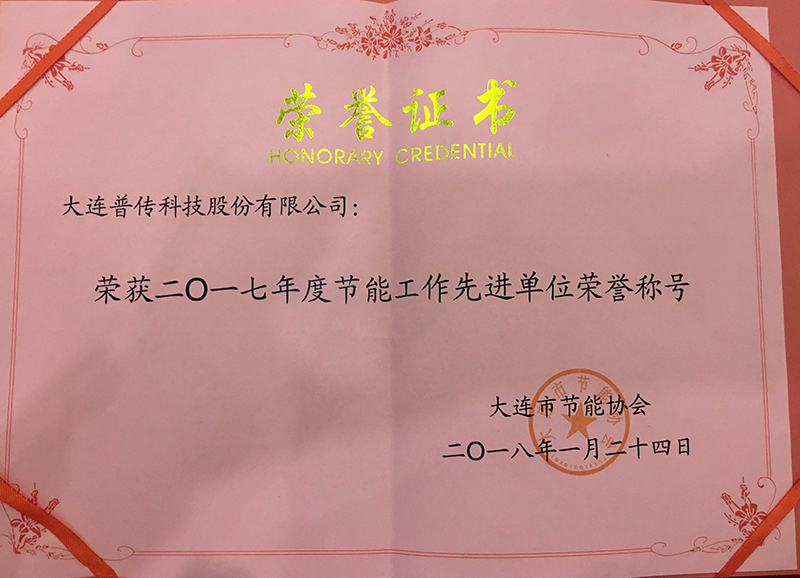 荣誉证书
HONORARY CREDENTIAL
大连普传科技股份有限公司：
荣获二〇一七年度节能工作先进单位荣誉称号
大连市节能协会
大连市节能协会
二〇一八年一月二十四日